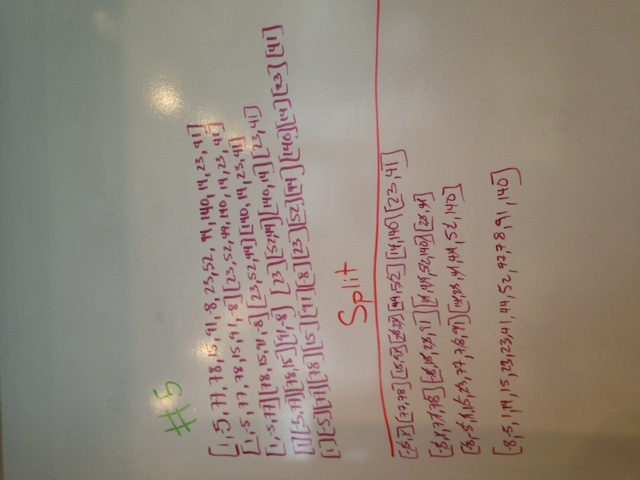 #5
[1,-5,77,78,15,91,-8,23,52,44,140,14,23,41]
[1,-5,77,78,15,91,-8][23,52,44,140,14,23,41]
[1,-5,77][78,15,91,-8][23,52,44][140,14,23,41]
[1][-5,77][78,15][91,-8] [23][52,44][140,14][23,41]
[1][-5][77][78][15][91][-8][23][52][44][140][14][23][41]
Split
[-5,1][77,78][15,91][-8,23][44,52][14,140][23,41]
[-5,1,77,78][-8,15,23,91][14,44,52,140][23,41]
[-8,-5,1,15,23,77,78,91][14,23,41,44,52,140]
[-8,-5,1,14,15,23,23,41,44,52,77,78,91,140]